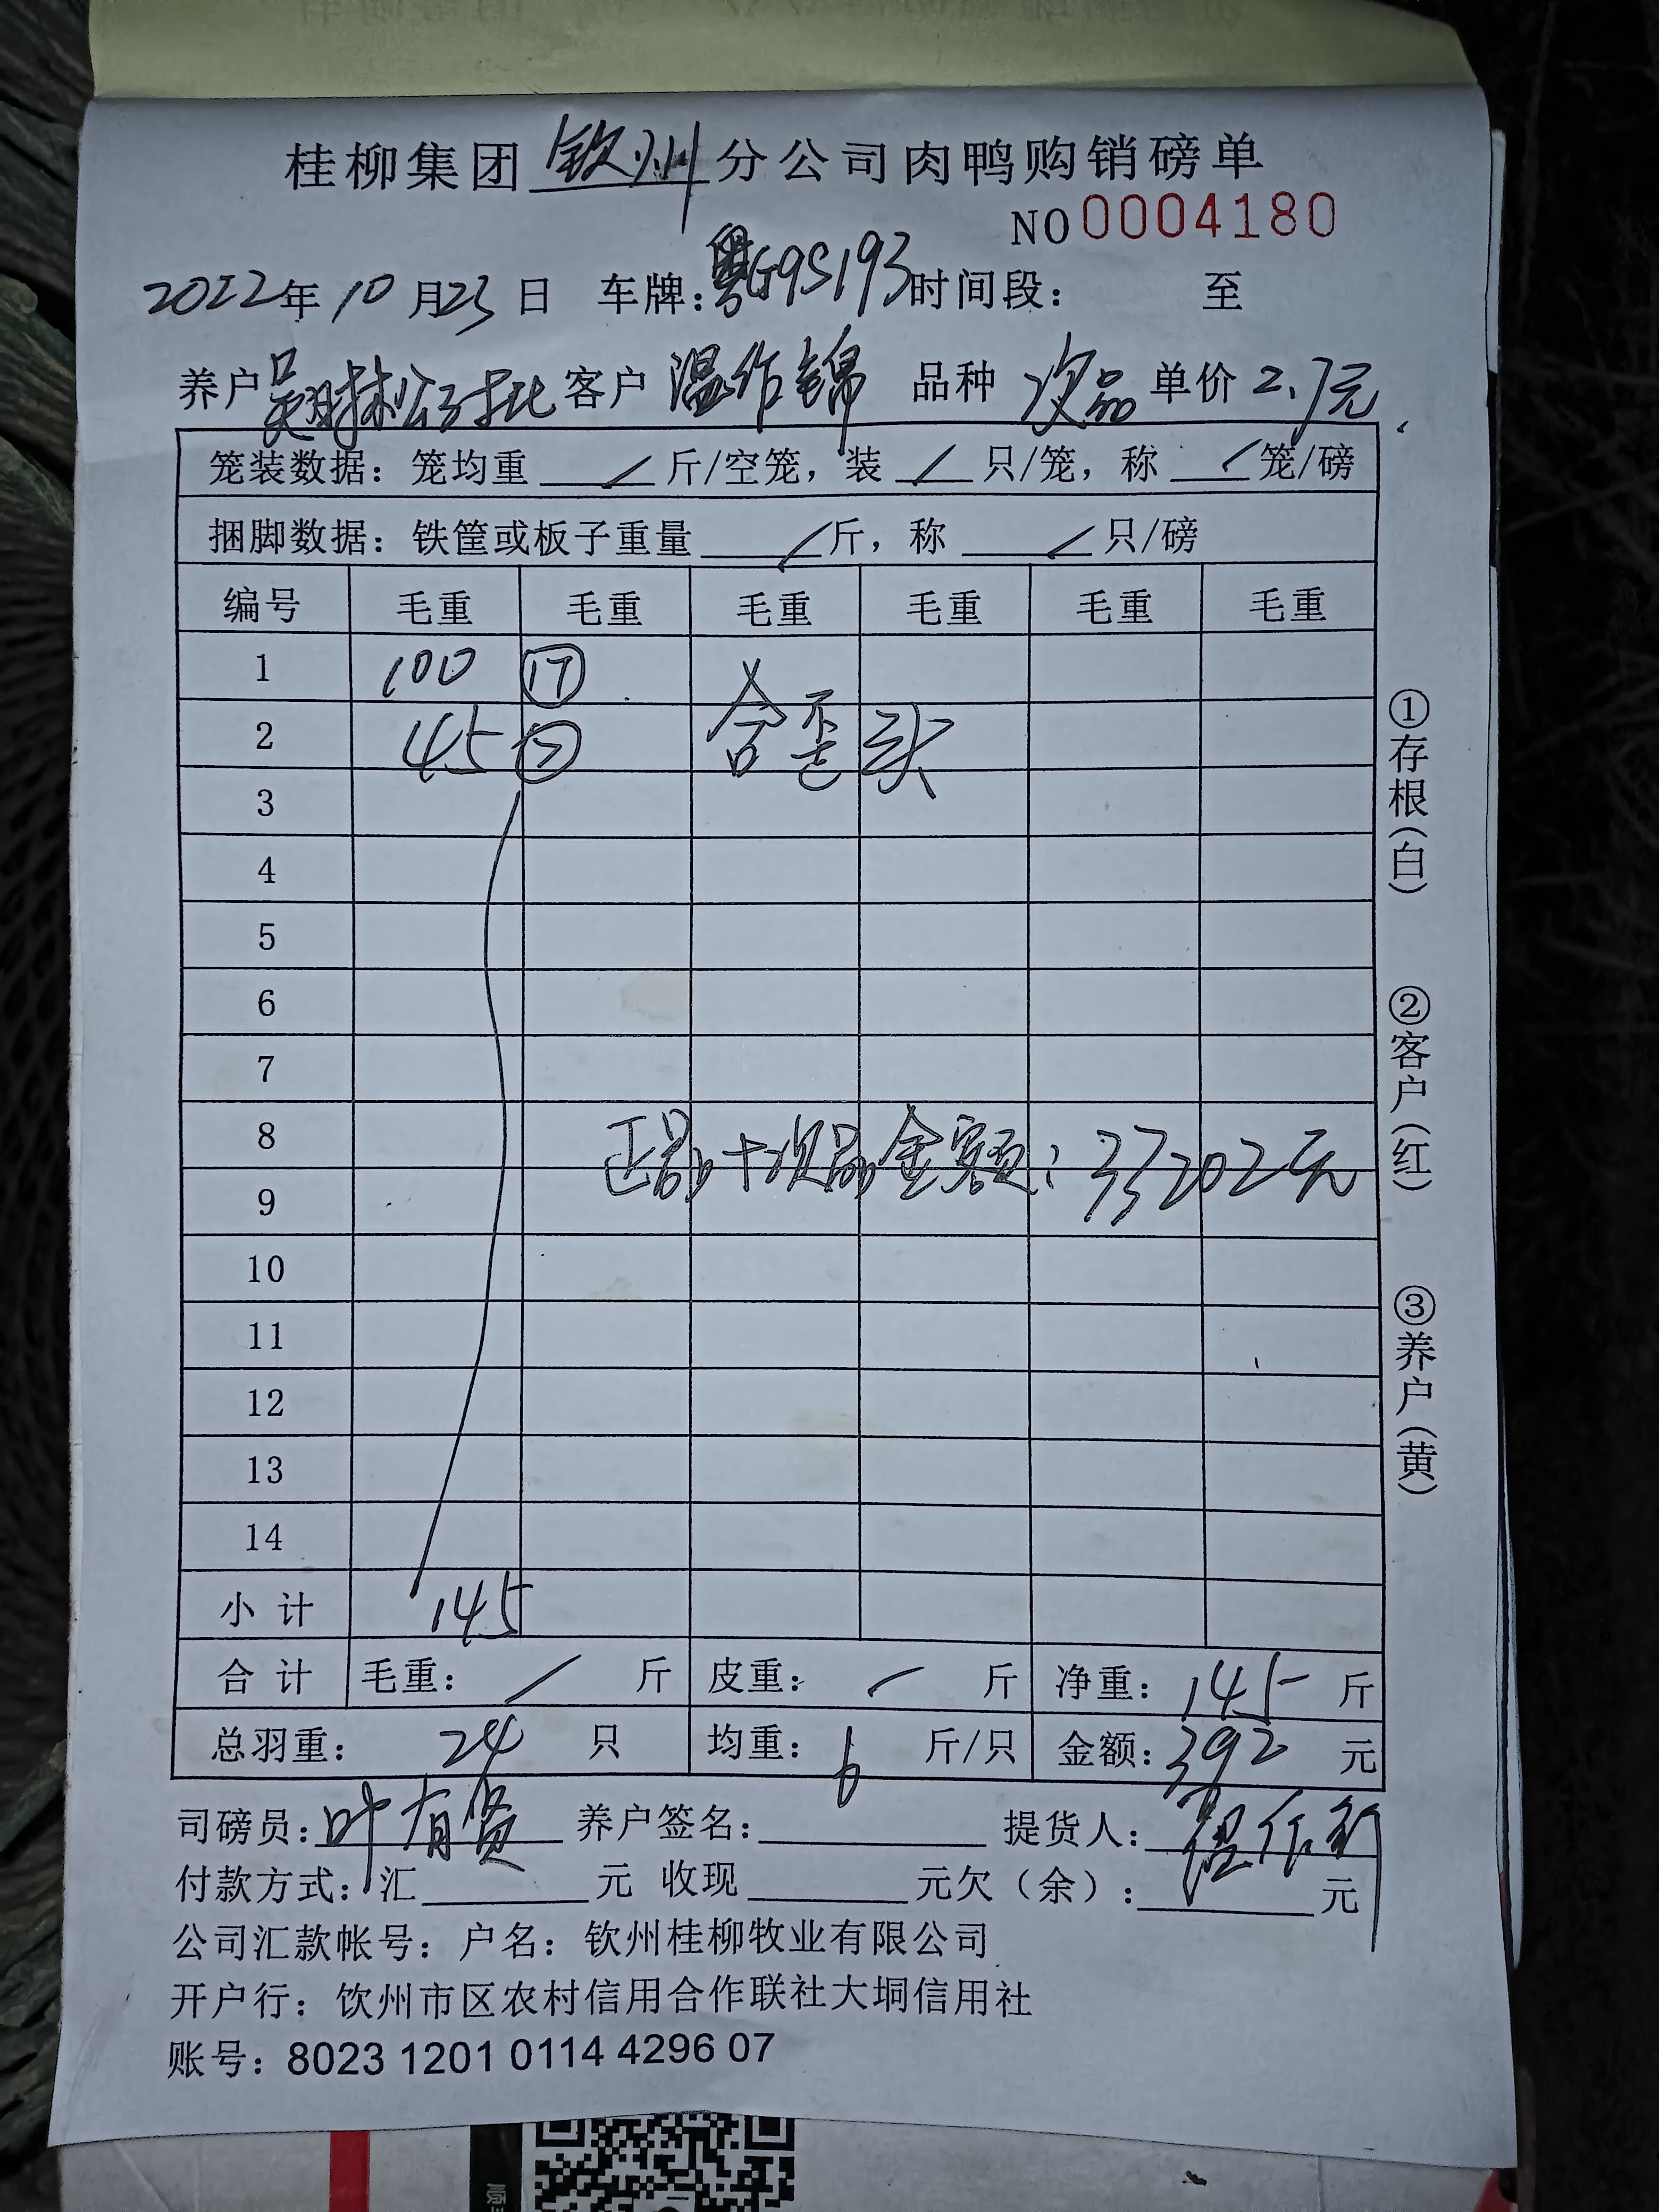 桂柳集团 钦州 分公司肉鸭购销磅单
NO 0004180
2022年10月23日 车牌:粤G9S193 时间段: 至
养户 客户 温作锦 品种 次品 单价 2.7元
笼装数据: 笼均重 / 斤/空笼, 装 / 只/笼, 称 / 笼/磅
捆脚数据: 铁筐或板子重量 / 斤, 称 / 只/磅
编号 毛重 毛重 毛重 毛重 毛重 毛重
1 100 ⑰
2 45 ⑦ 含歪头
3
4
5
6
7
8 正品+次品金额: 33202元
9
10
11
12
13
14
小计 145
合计 毛重: / 斤 皮重: / 斤 净重: 145 斤
总羽重: 24 只 均重: 6 斤/只 金额: 392 元
司磅员: 叶有贤 养户签名: 提货人: 温作锦
付款方式: 汇 元 收现 元欠(余): 元
公司汇款帐号: 户名: 钦州桂柳牧业有限公司
开户行: 钦州市区农村信用合作联社大垌信用社
账号: 8023 1201 0114 4296 07
①存根(白)
②客户(红)
③养户(黄)